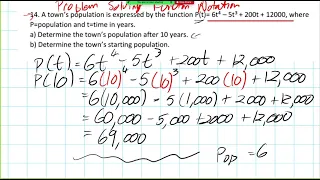 Problem Solving Function Notation
14. A town's population is expressed by the function P(t)= 6t⁴ – 5t³ + 200t + 12000, where
P=population and t=time in years.
a) Determine the town's population after 10 years.
b) Determine the town's starting population.
P(t) = 6t⁴ - 5t³ + 200t + 12,000
P(10) = 6(10)⁴ - 5(10)³ + 200(10) + 12,000
= 6(10,000) - 5(1,000) + 2000 + 12,000
= 60,000 - 5,000 + 2000 + 12,000
= 69,000
Pop = 6